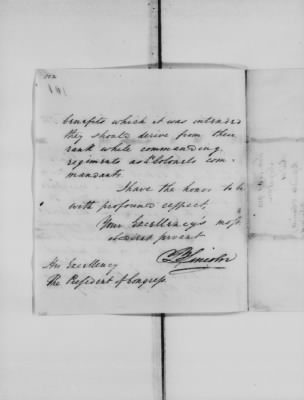 benefits which it was intended
they should derive from their
rank while commanding
regiments as Lt Colonels com-
mandants.
I have the honor to be
with profound respect,
Your Excellency's most
obedient servant
B Lincoln
His Excellency
The President of Congress.